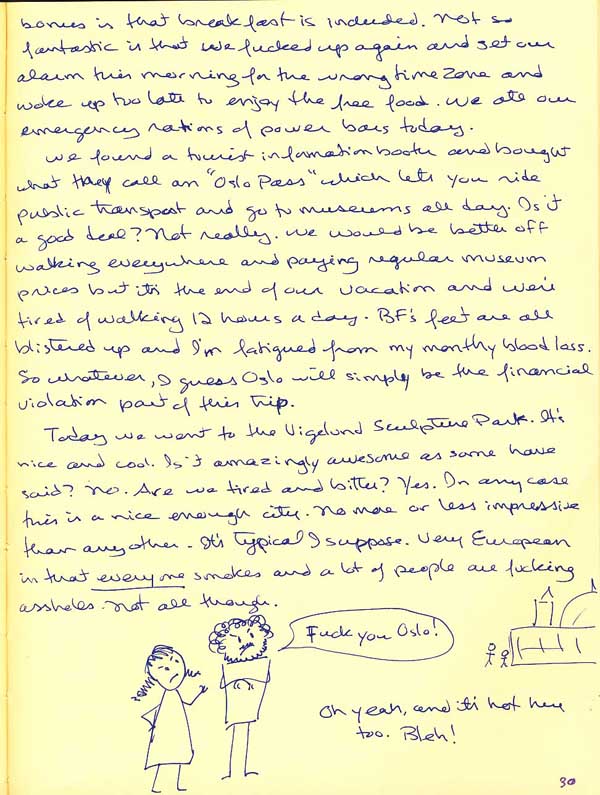 bonus is that breakfast is included. Not so
fantastic is that we fucked up again and set our
alarm this morning for the wrong time zone and
woke up too late to enjoy the free food. We ate our
emergency rations of power bars today.
We found a tourist information booth and bought
what they call an "Oslo Pass" which lets you ride
public transport and go to museums all day. Is it
a good deal? Not really. We would be better off
walking everywhere and paying regular museum
prices but it's the end of our vacation and we're
tired of walking 12 hours a day. BF's feet are all
blistered up and I'm fatigued from my monthly blood loss.
So whatever, I guess Oslo will simply be the financial
violation part of this trip.
Today we went to the Vigelund Sculpture Park. It's
nice and cool. Is it amazingly awesome as some have
said? No. Are we tired and bitter? Yes. In any case
this is a nice enough city. No more or less impressive
than any other. It's typical I suppose. Very European
in that everyone smokes and a lot of people are fucking
assholes. Not all though.
Fuck you Oslo!
Oh yeah, and it's hot here
too. Bleh!
30